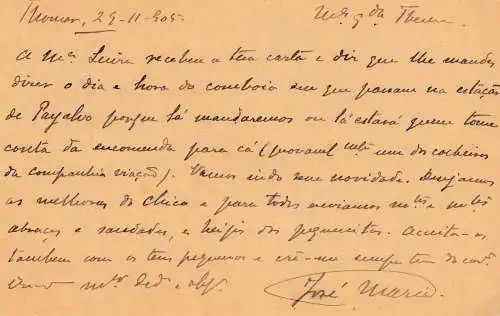 Thomar, 29-11-905. M.ª q.da Thereza
A M.ª Luiza recebeu a tua carta e diz que lhe mandes
dizer o dia e hora do comboio em que passam na estação
de Payalvo porque lá mandaremos ou lá estará quem tome
conta da encomenda para cá (provavel.mte um dos cocheiros
da companhia viação). Vamos indo sem novidade. Desejamos
as melhoras do Chico e para todos enviamos m.tos e m.tos
abraços e saudades, e beijos dos pequenitos. Aceita-os
tambem com os teus pequenos e crê-me sempre teu do cor.
m.to ded.º e obg.º
José Maria